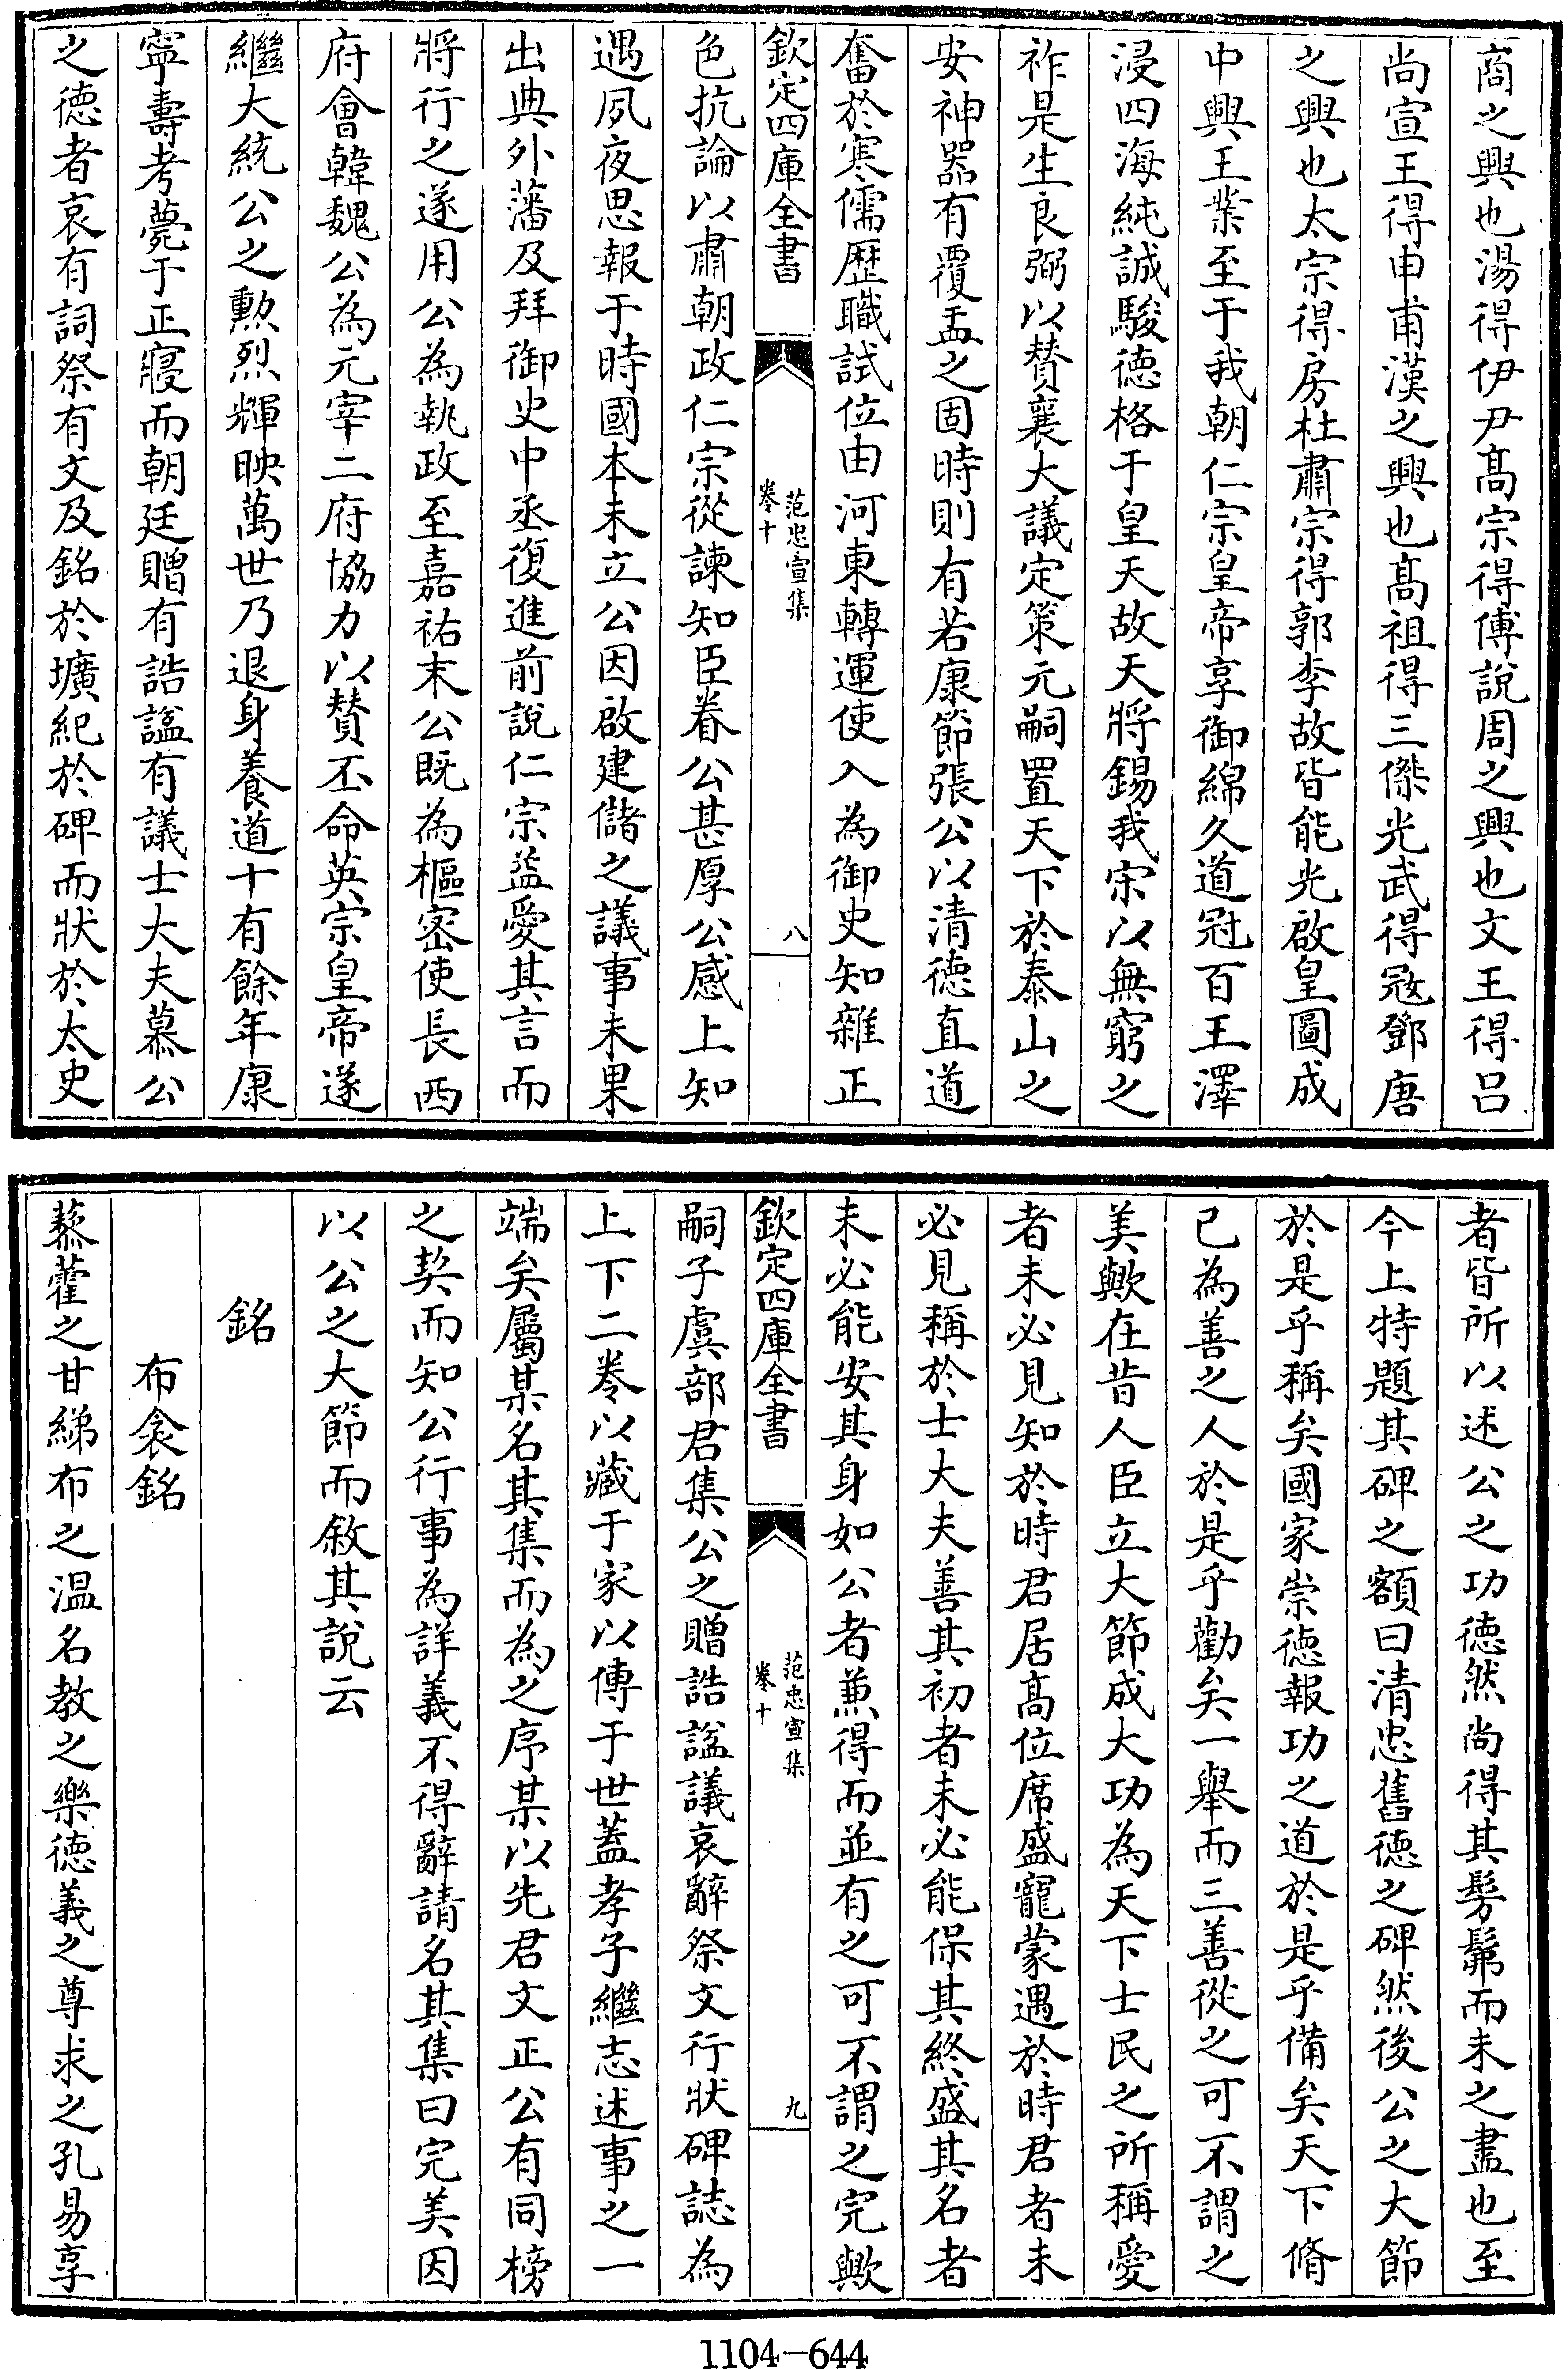 商之興也湯得伊尹髙宗得傅說周之興也文王得吕
尚宣王得申甫漢之興也髙祖得三傑光武得宼鄧唐
之興也太宗得房杜肅宗得郭李故皆能光啟皇圖成
中興王業至于我朝仁宗皇帝享御綿久道冠百王澤
浸四海純誠駿徳格于皇天故天將錫我宋以無窮之
祚是生良弼以賛襄大議定策元嗣置天下於泰山之
安神器有覆盂之固時則有若康節張公以清徳直道
奮於寒儒歴職試位由河東轉運使入為御史知雜正
欽定四庫全書
范忠宣集
卷十
八
色抗論以肅朝政仁宗從諫知臣眷公甚厚公感上知
遇夙夜思報于時國本未立公因啟建儲之議事未果
出典外藩及拜御史中丞復進前說仁宗益愛其言而
將行之遂用公為執政至嘉祐末公既為樞密使長西
府會韓魏公為元宰二府協力以賛丕命英宗皇帝遂
繼大統公之勲烈輝映萬世乃退身養道十有餘年康
寧壽考薨于正寢而朝廷贈有誥諡有議士大夫慕公
之徳者哀有詞祭有文及銘於壙紀於碑而狀於太史
者皆所以述公之功徳然尚得其髣髴而未之盡也至
今上特題其碑之額曰清忠舊徳之碑然後公之大節
於是乎稱矣國家崇徳報功之道於是乎備矣天下脩
已為善之人於是乎勸矣一舉而三善從之可不謂之
美歟在昔人臣立大節成大功為天下士民之所稱愛
者未必見知於時君居髙位席盛寵蒙遇於時君者未
必見稱於士大夫善其初者未必能保其終盛其名者
未必能安其身如公者兼得而並有之可不謂之完歟
欽定四庫全書
范忠宣集
卷十
九
嗣子虞部君集公之贈誥諡議哀辭祭文行狀碑誌為
上下二卷以藏于家以傳于世蓋孝子繼志述事之一
端矣屬某名其集而為之序某以先君文正公有同榜
之契而知公行事為詳義不得辭請名其集曰完美因
以公之大節而敘其說云
銘
布衾銘
藜藿之甘綈布之温名教之樂徳義之尊求之孔易享
1104-644